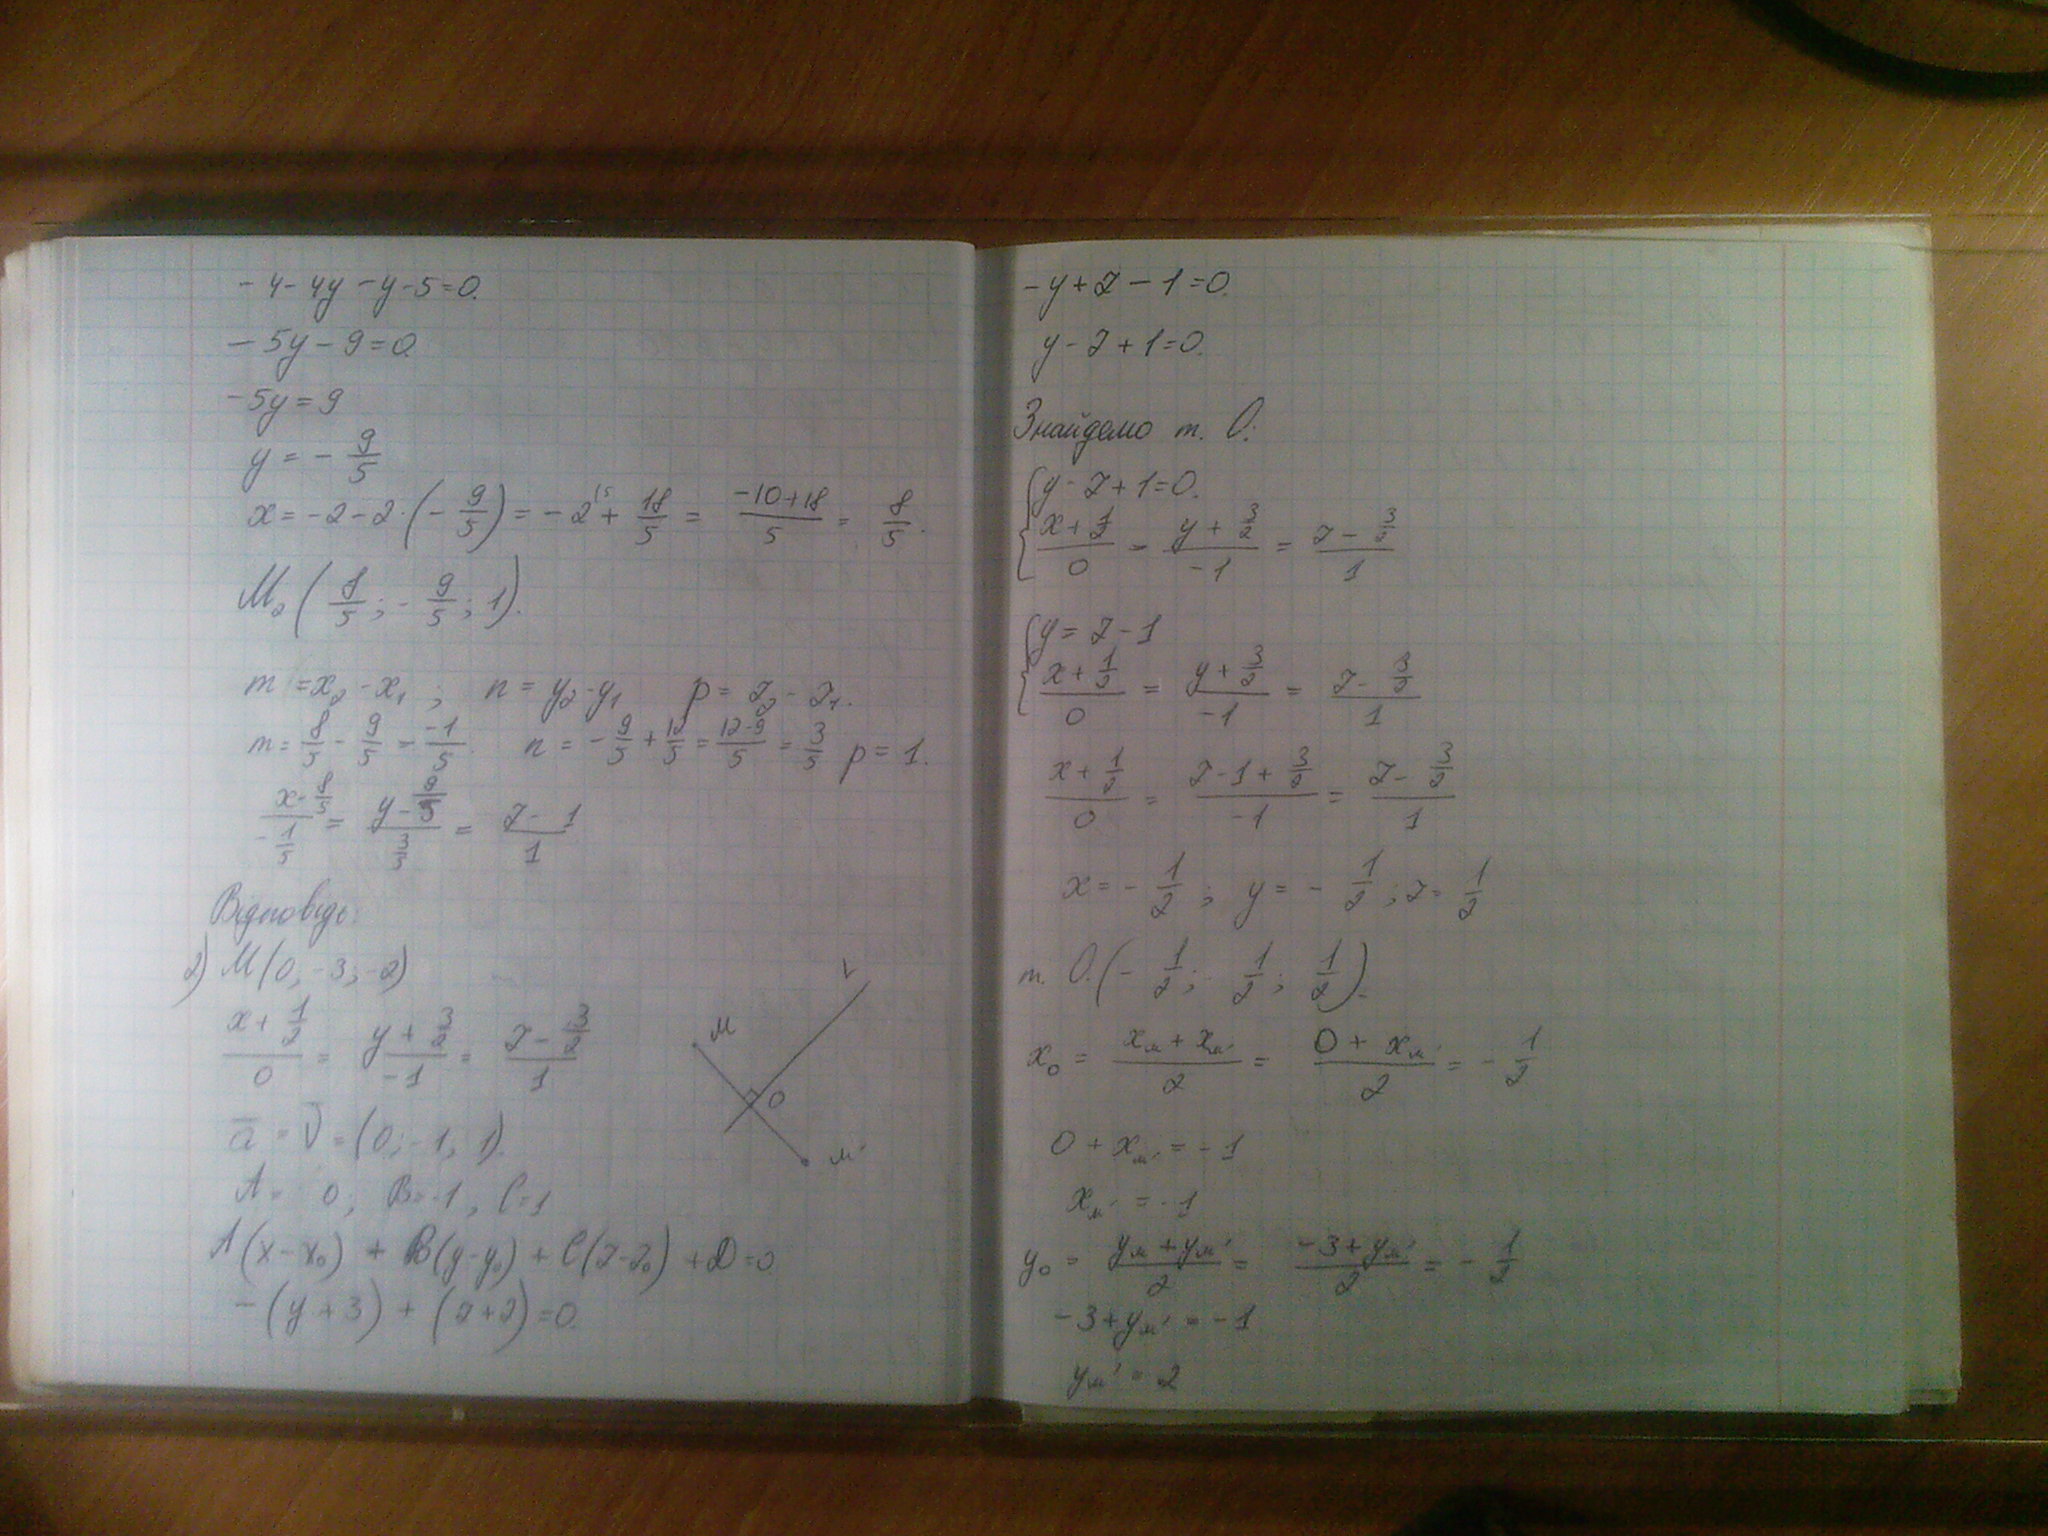 -4-4y-y-5=0.
-5y-9=0
-5y=9
y = - 9/5
x = -2-2·(-9/5) = -2^(5 + 18/5 = (-10+18)/5 = 8/5.
M₂(8/5; -9/5; 1).
m = x₂-x₁; n = y₂-y₁ p = z₂-z₁.
m = 8/5 - 9/5 = -1/5. n = -9/5 + 12/5 = (12-9)/5 = 3/5 p = 1.
(x-8/5)/(-1/5) = (y-9/5)/(3/5) = (z-1)/1
Відповідь:
2) M(0; -3; -2)
(x+1/2)/0 = (y+3/2)/-1 = (z-3/2)/1
M
O
M'
a̅ = V̅ = (0; -1; 1).
A = 0; B=-1, C=1
A(x-x₀) + B(y-y₀) + C(z-z₀) + D=0
-(y+3) + (z+2)=0.
-y+z-1=0.
y-z+1=0.
Знайдемо т. O:
{y-z+1=0.
(x+1/2)/0 = (y+3/2)/-1 = (z-3/2)/1
{y = z-1
(x+1/2)/0 = (y+3/2)/-1 = (z-3/2)/1
(x+1/2)/0 = (z-1+3/2)/-1 = (z-3/2)/1
x = -1/2; y = -1/2; z = 1/2
т. O.(-1/2; -1/2; 1/2).
x₀ = (xм + xм')/2 = (0 + xм')/2 = -1/2
0 + xм' = -1
xм' = -1
y₀ = (yм + yм')/2 = (-3+yм')/2 = -1/2
-3+yм' = -1
yм' = 2